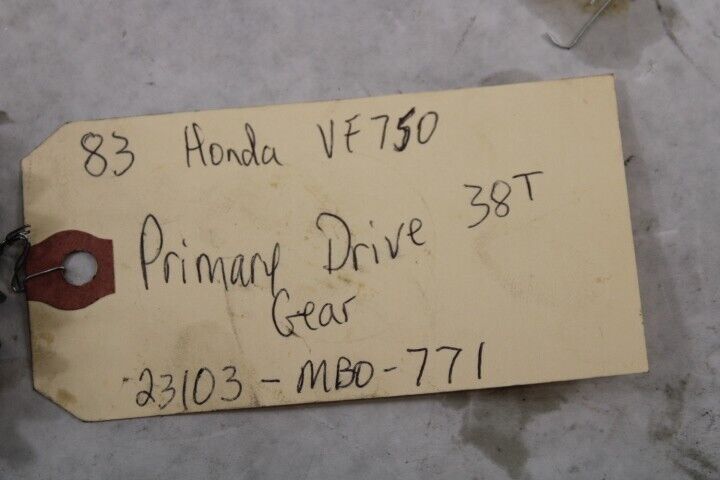 83 Honda VF750
Primary Drive 38T
Gear
23103-MB0-771